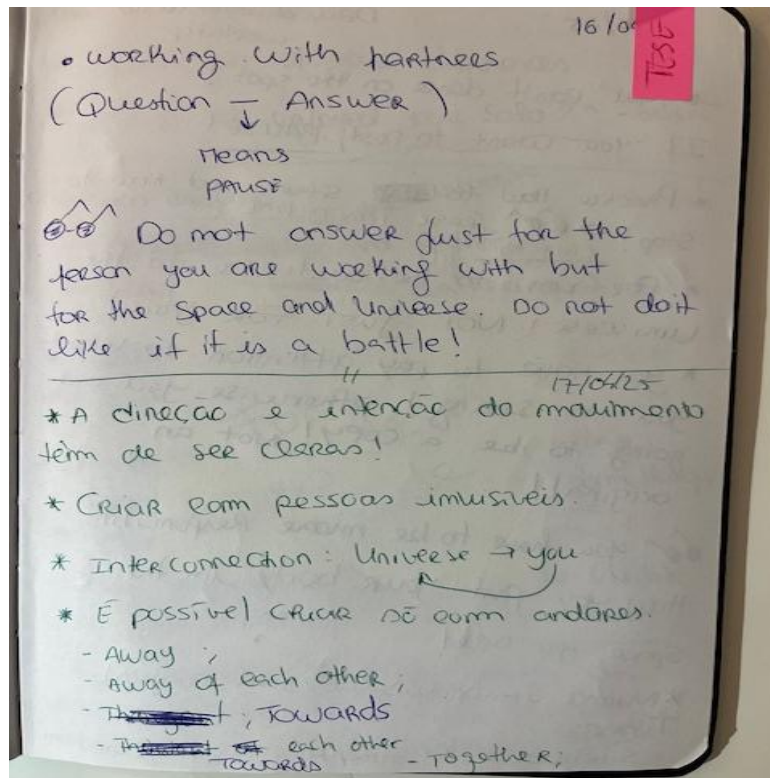 16/0
TESE
• working with partners
(Question – Answer)
↓
Means
PAUSE
Do not answer just for the
person you are working with but
for the Space and Universe. Do not do it
like if it is a battle!
17/04/25
* A direção e intenção do movimento
têm de ser claras!
* Criar com pessoas invisíveis.
* Interconnection: Universe → you
* É possível criar só com andares.
- Away ;
- Away of each other ;
- ; TOWARDS
- each other
TOWARDS
- Together;